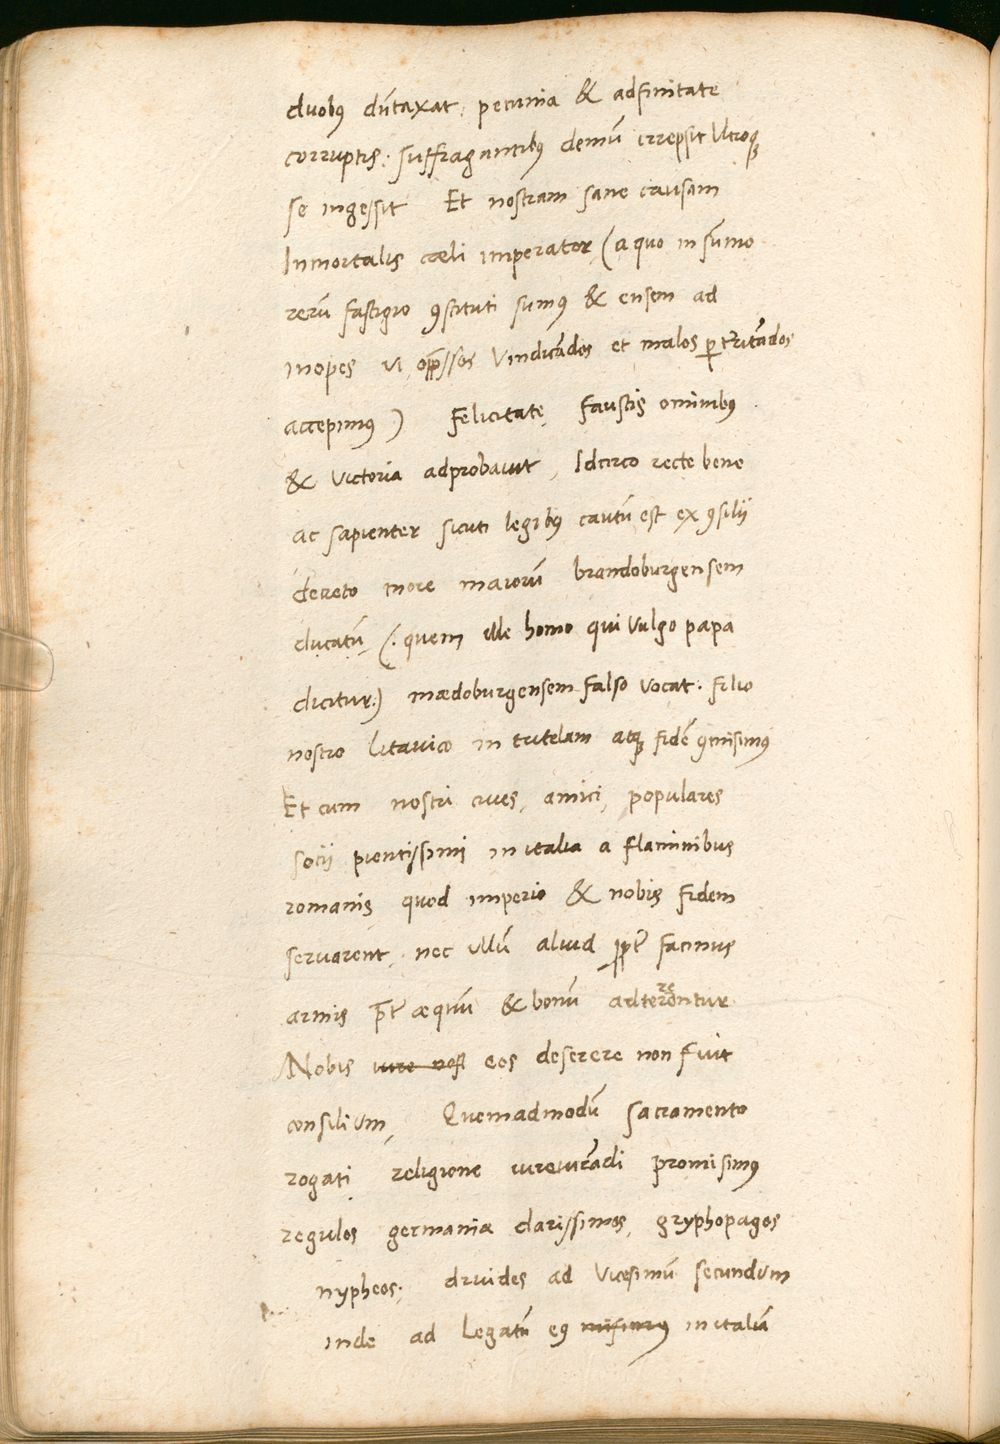 duobꝰ dūtaxat pecunia & adfinitate
corruptis. suffragantibꝰ demū irrepsit Utroqꝫ
se ingessit Et nostram sane causam
Inmortalis cæli imperator (a quo in sūmo
rerū fastigio ꝯstituti sumꝰ & ensem ad
inopes vi opp̄ssos Vindicādos et malos ꝑ
accepimus) Felicitate, faustis ominibꝰ
& Victoria adprobauit, Idcirco recte bene
ac sapienter sicuti legibꝰ cautū est ex ꝯsilij
decreto more maiorū brandoburgensem
ducatū, (. quem ille homo qui Vulgo papa
dicitur.) mædoburgensem falso Vocat. filio
nostro litauico in tutelam atqꝫ fidē ꝯmisimꝰ
Et cum nostri ciues, amici, populares
socij pientissimi in italia a flaminibus
romanis quod imperio & nobis fidem
seruarent, nec vllū aliud ꝓpt̄ facinus
armis p̄t̄ æquū & bonū adterorentur
Nobis iure eos deserere non fuit
consilium, Quemadmodū sacramento
rogati religione iureiurādi promisimꝰ
regulos germaniæ clarissimos, gryphopagos
nypheos. druides ad Vicesimū secundum
inde ad Legatū eꝰ misimus in italiā